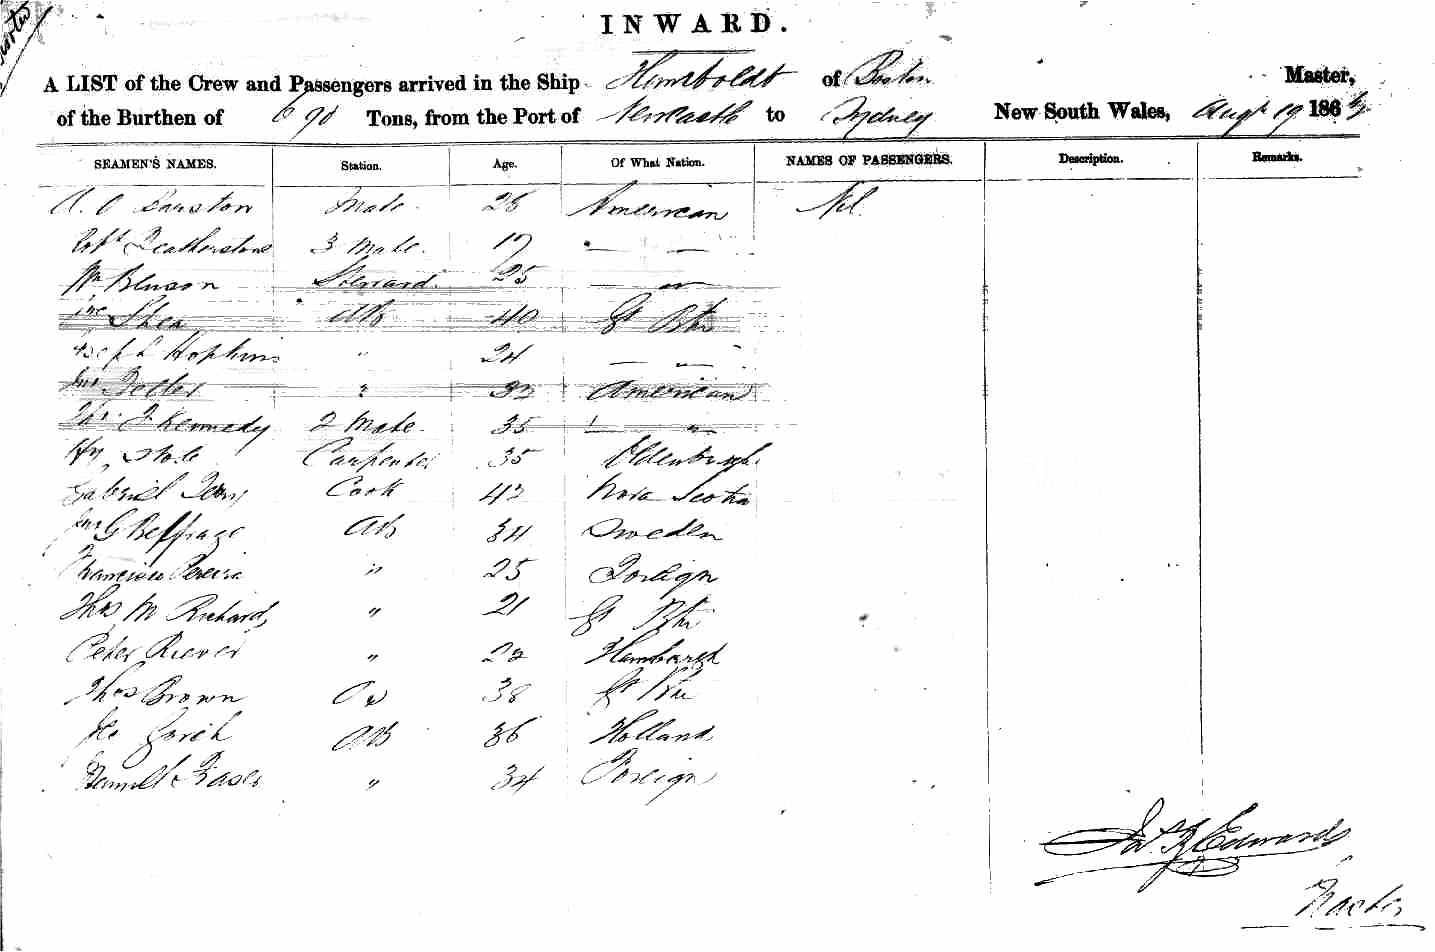 INWARD.
A LIST of the Crew and Passengers arrived in the Ship Humboldt of Boston Master,
of the Burthen of 690 Tons, from the Port of Newcastle to Sydney New South Wales, Augt 19 186
SEAMEN'S NAMES. Station. Age. Of What Nation. NAMES OF PASSENGERS. Description. Remarks.
A. O Mate 28 American Nil.
Robt Featherstone 3 Mate. 17 " — —
Wm Benson Steward. 25 — "
Jno Shea AB 40 Gt Btn
Joseph Hopkins " 24 — " —
Jno " American
Thos F Kennedy 2 Mate. 35 " "
Hy Carpenter 35 Oldenburgh
Gabriel Cook Nova Scotia
Jno G Beffrage AB 34 Sweden
Francisco Pereira " 25 Foreign
Thos M Richards " 21 Gt Btn
Peter " Hamburgh
Thos Brown 38 Gt Btn
AB 36 Holland
Fraser " 34 Foreign
Edwards
Master